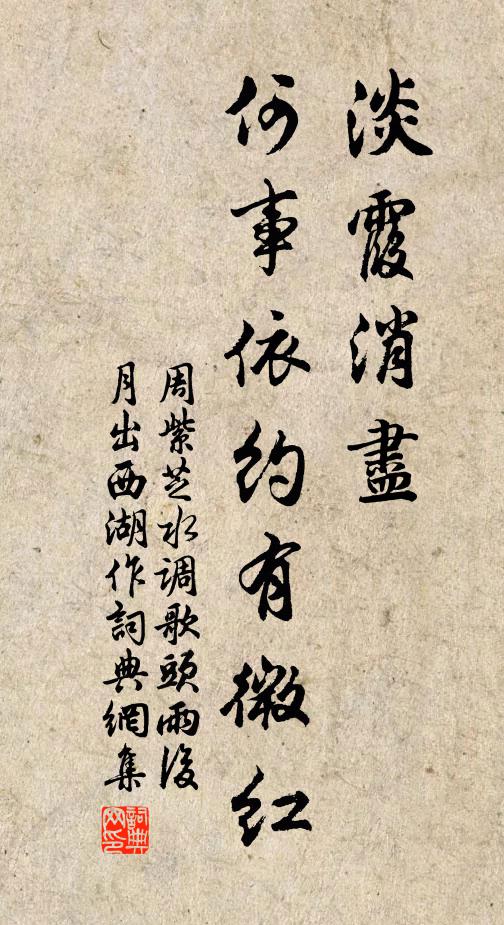 淡霞消盡
何事依約有微紅
周紫芝水調歌頭雨後
月出西湖作詞典網集
詞典
网印